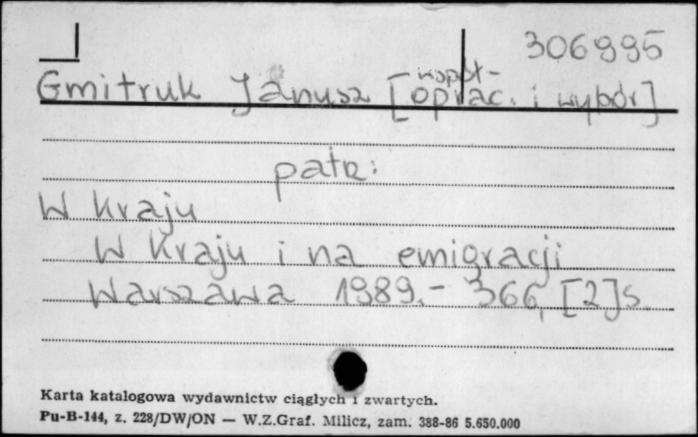 306995
współ-
Gmitruk Janusz [oprac. i wybór]
patrz:
W kraju
W kraju i na emigracji
Warszawa 1989.- 366, [2]s.
Karta katalogowa wydawnictw ciągłych i zwartych.
Pu-B-144, z. 228/DW/ON — W.Z.Graf. Milicz, zam. 388-86 5.650.000